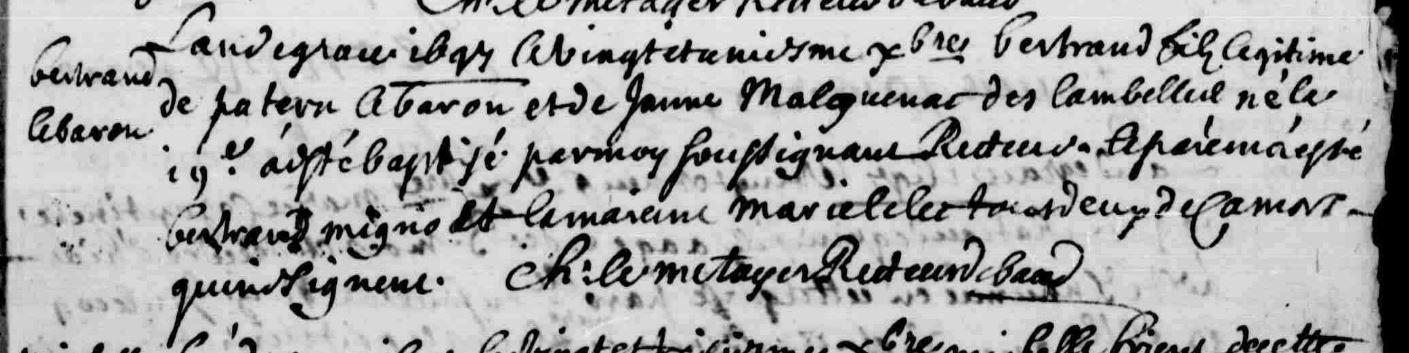 Ch: le metayer Recteur de baud
bertrand
lebaron
Landegrace 1697 le vingt et uniesme xbres bertrand filz legitime
de patern le baron et de Janne Malquenac des lambelleul né le
19e a esté baptisé par moy soussignant Recteur. le parein a esté
bertrand mignot et la mareine marie le tous deux de Camors
qui ne signent. Ch: le metayer Recteur d baud
le vingt et xbre